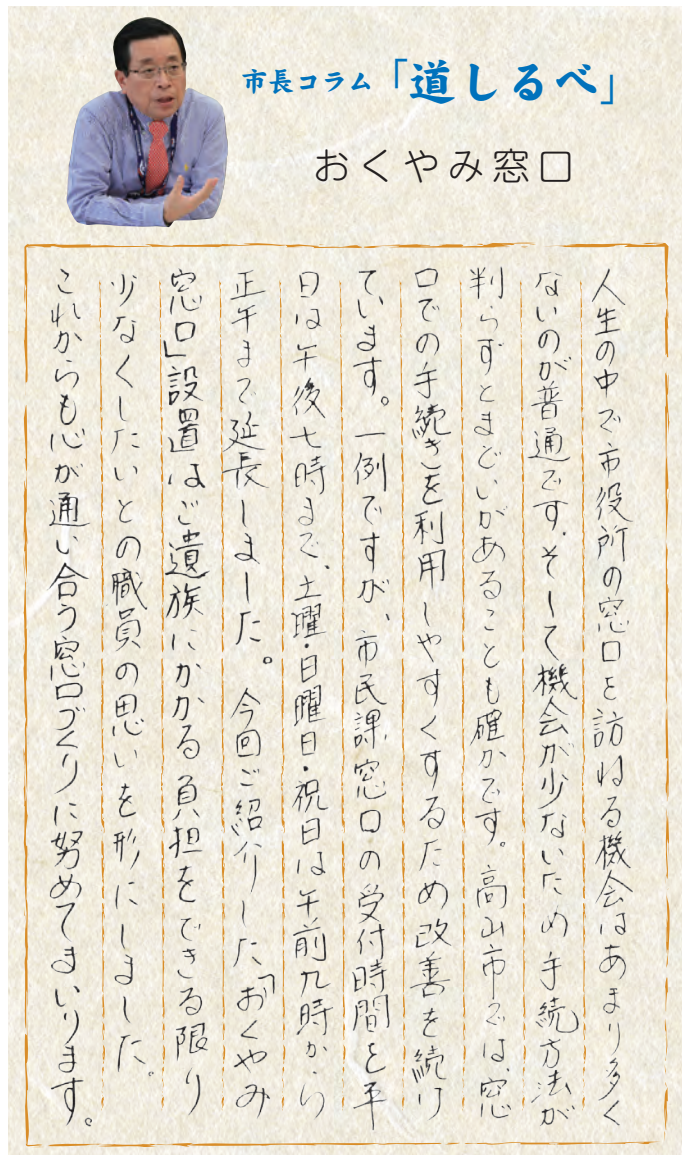 市長コラム「道しるべ」
おくやみ窓口
人生の中で市役所の窓口を訪ねる機会はあまり多く
ないのが普通です。そして機会が少ないため手続方法が
判らずとまどいがあることも確かです。高山市では、窓
口での手続きを利用しやすくするため改善を続け
ています。一例ですが、市民課窓口の受付時間を平
日は午後七時まで、土曜・日曜日・祝日は午前九時から
正午まで延長しました。今回ご紹介した「おくやみ
窓口」設置はご遺族にかかる負担をできる限り
少なくしたいとの職員の思いを形にしました。
これからも心が通い合う窓口づくりに努めてまいります。